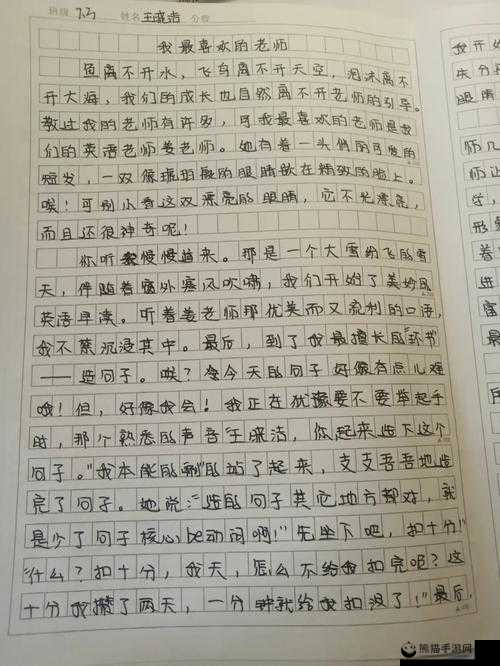 班级 7.3 姓名 王 浩 分数
我最喜欢的老师
鱼离不开水，飞鸟离不开天空，泡沫离不
开大海，我们的成长也自然离不开老师的引导。
教过我的老师有许多，可我最喜欢的老师是我
们的英语老师姜老师。她有着一头俏丽可爱的
短发，一双像琉璃般的眼睛嵌在精致的脸上。
唉！可别小看这双漂亮的眼睛，它不光漂亮，
而且还很神奇呢！
你听我慢慢道来。那是一个大雪纷飞的雪
天，伴随着窗外寒风吹啸，我们开始了美妙的
英语早读。听着姜老师那优美而又流利的口语，
我不禁沉浸其中。最后，到了我最擅长的“环节
——造句子。咦？今天的句子好像有点儿难
哦！但，好像我会！我正在犹豫要不要举起手
时，那个熟悉的声音“王 洁，你起来造下这个
句子。”我本能的 的站了起来，支支吾吾地造
完了句子。她说：“造的句子其它地方都对，就
是少了句子核心be动词啊！”先坐下吧，扣十分！”
“什么？扣十分，我天，怎么不给我扣完呢？这
十分我攒了两天，一分钟就给我扣没了！”最后，
我开始
失分
眼睛
师几
师让
学，
形
着
进
富
睛
熊猫手游网